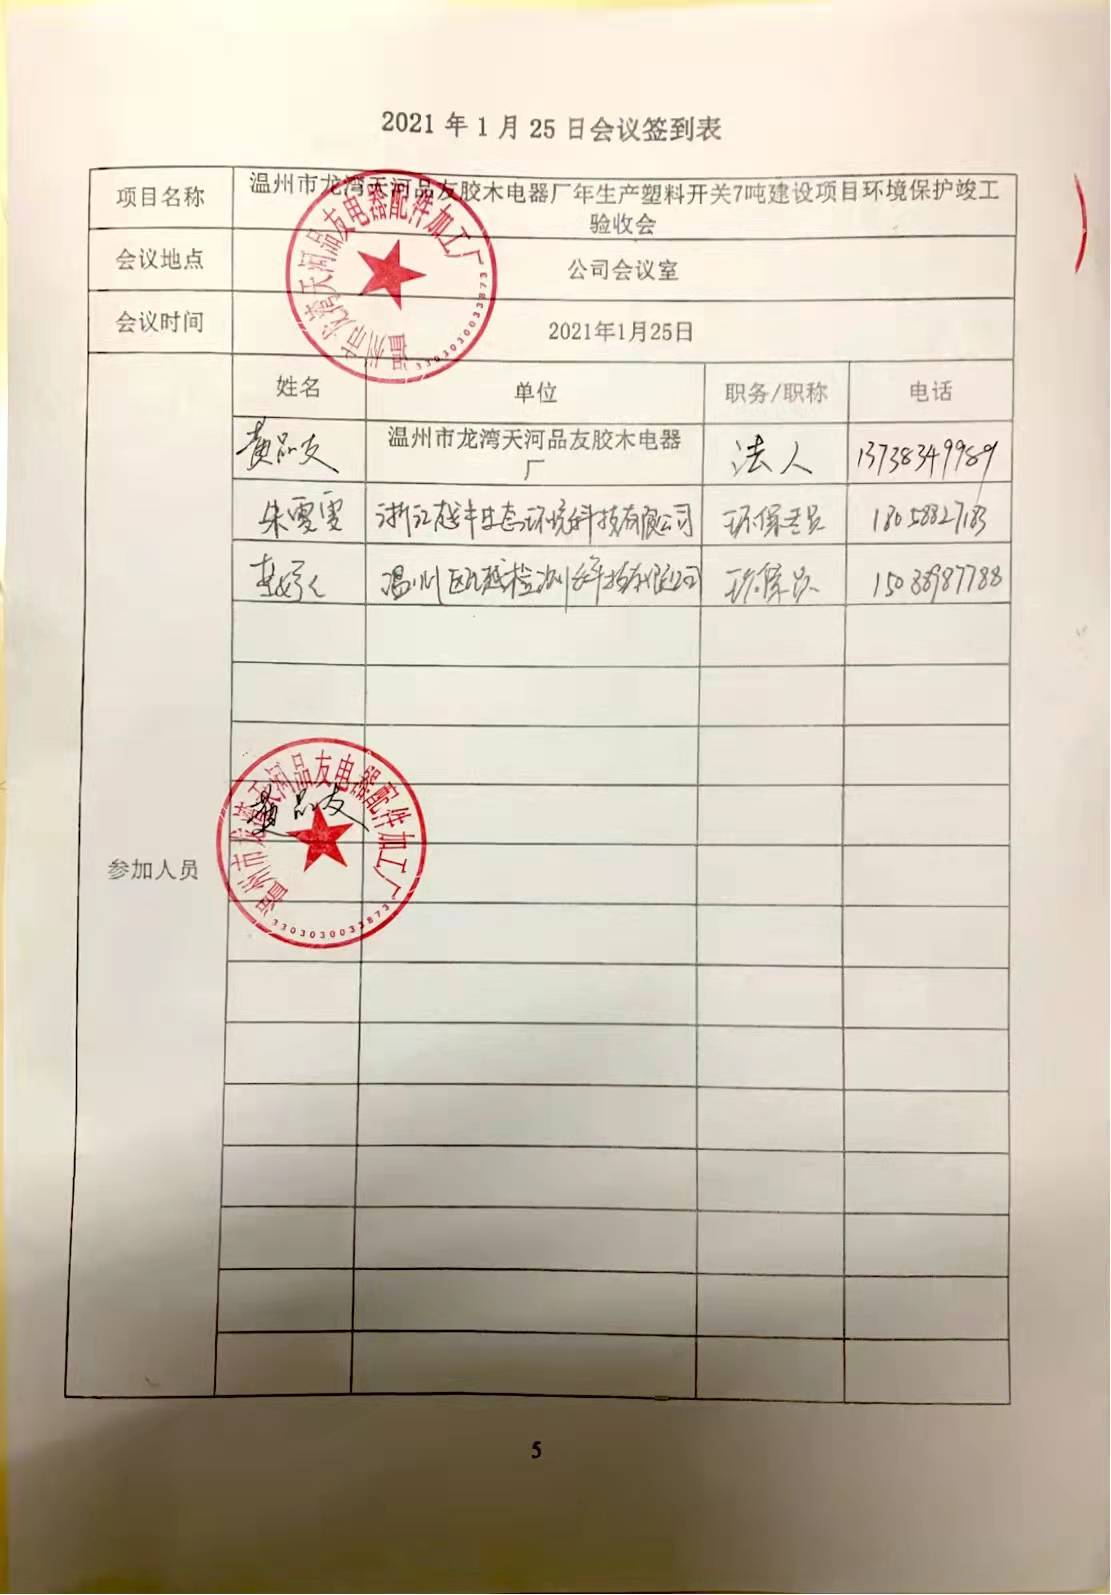 2021 年 1 月 25 日会议签到表
项目名称
温州市龙湾天河品友胶木电器厂年生产塑料开关7吨建设项目环境保护竣工
验收会
会议地点
公司会议室
会议时间
2021年1月25日
温州市龙湾天河品友电器配件加工厂
3303030033873
参加人员
姓名 单位 职务/职称 电话
黄品友 温州市龙湾天河品友胶木电器 法人 13738349989
厂
朱雯雯 浙江越丰生态环境科技有限公司 环保专员
温州瓯越检测科技有限公司 环保员
温州市龙湾天河品友电器配件加工厂
黄品友
3303030033873
5